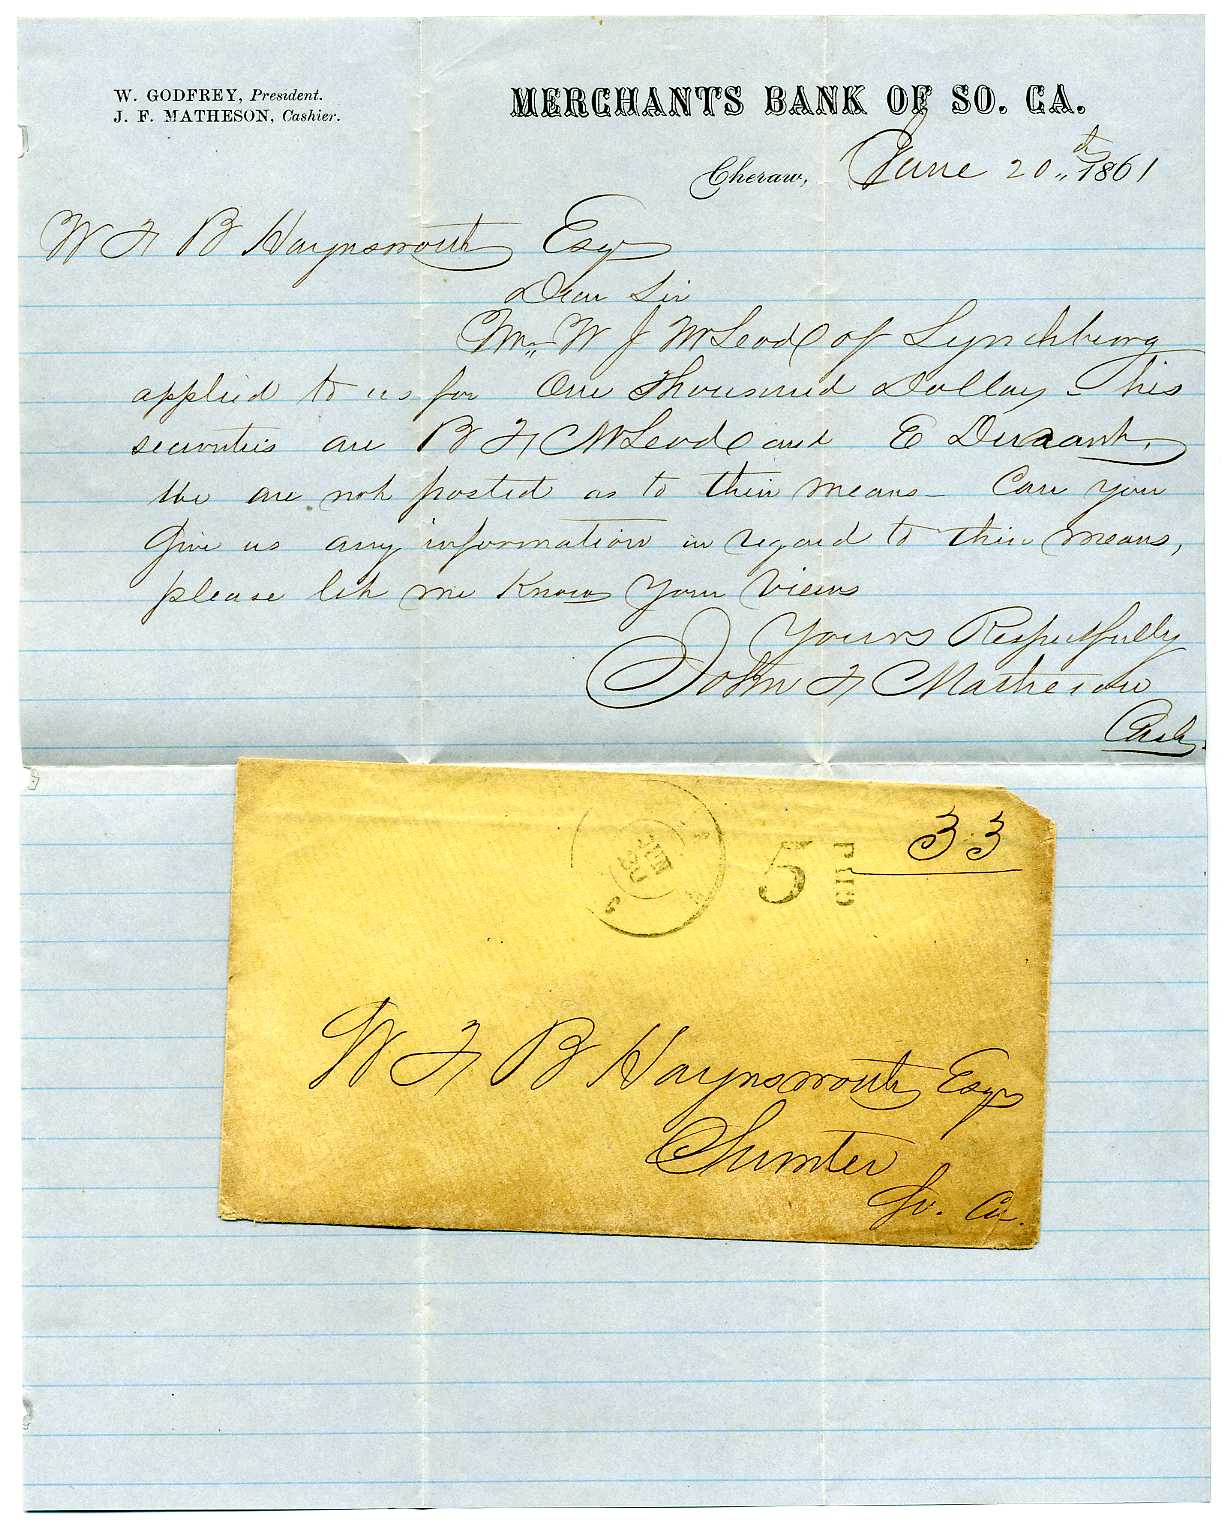 W. GODFREY, President.
J. F. MATHESON, Cashier.
MERCHANTS BANK OF SO. CA.
Cheraw, June 20th 1861
W F B Haynsworth Esq
Dear Sir
Mr W J McLeod of Lynchburg
applied to us for One Thousand Dollars - his
securities are B F McLeod and E Durant,
We are not posted as to their means - Can you
Give us any information in regard to their means,
please let me know your views
Yours Respectfully
John F Matheson
Cash.
JUN 20
5 PAID
33
W F B Haynsworth Esq
Sumter
So. Ca.